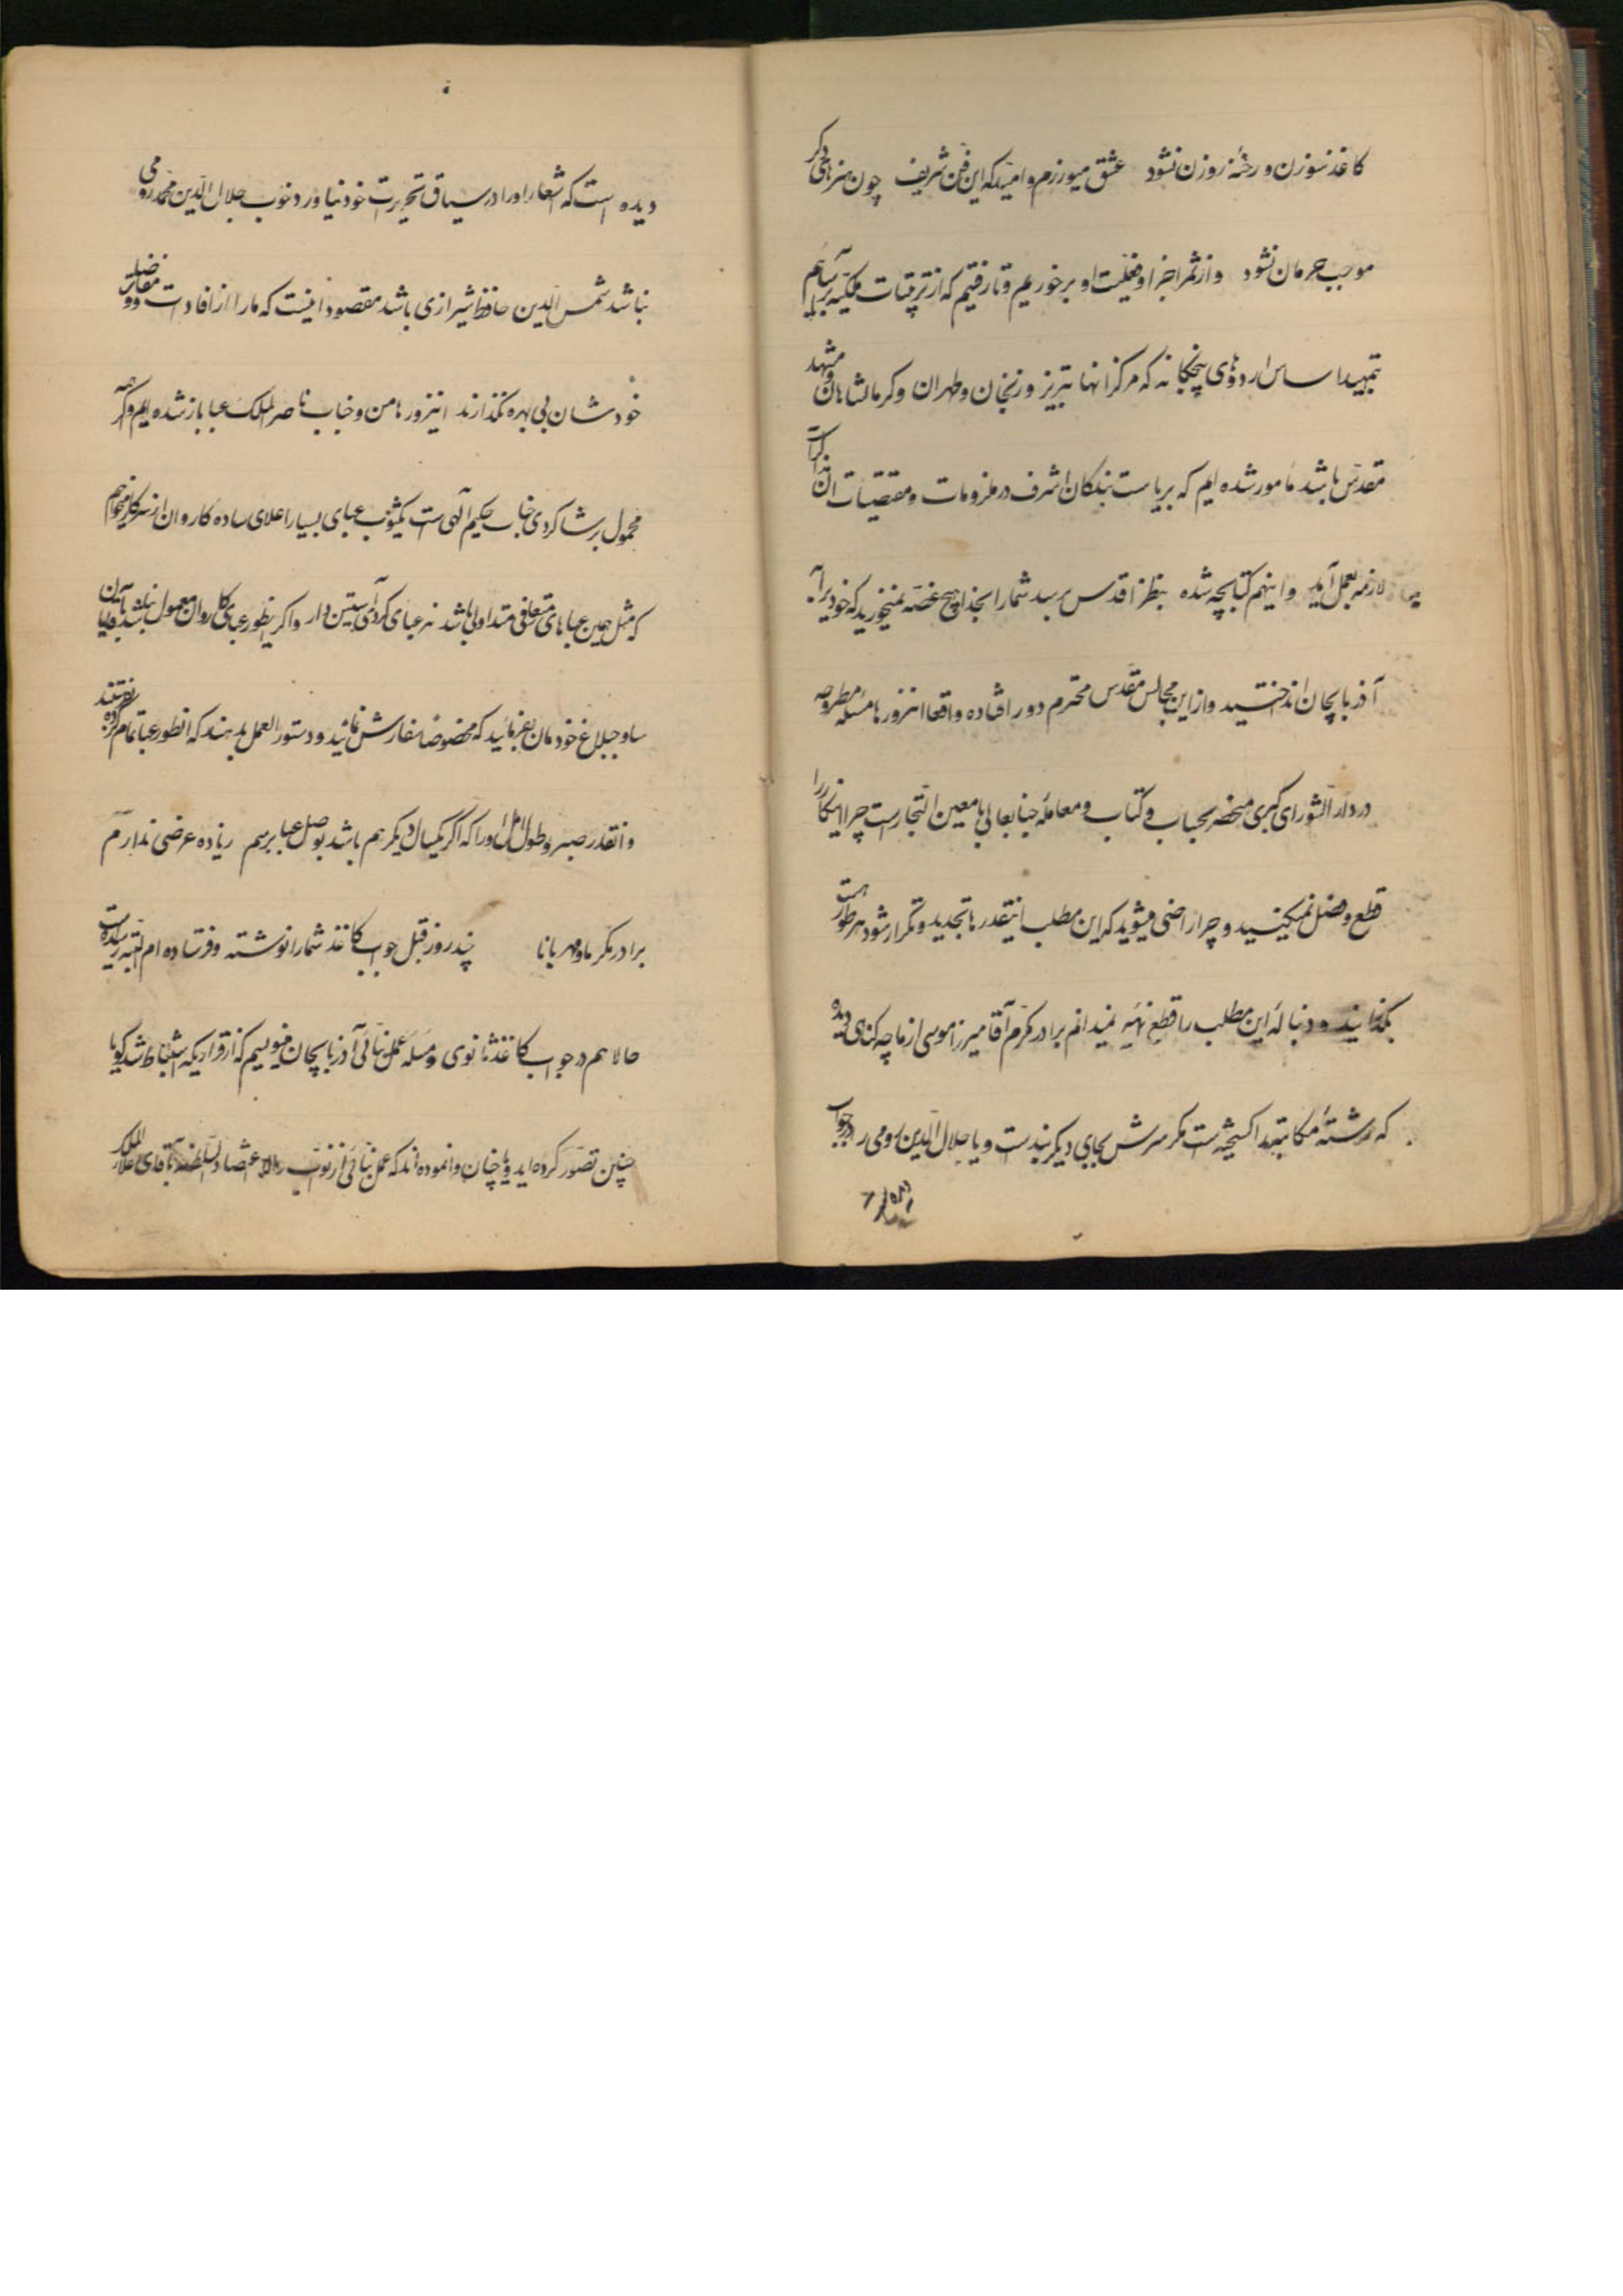 کاغذ سوزن و رخنه روزن نشود عشق میورزم و امید که این فن شریف چون هنرهای دگر
موجب حرمان نشود و از ثمر اجزا و فعلیت او برخوریم و تا رفتیم که از ترتیبات ملکیه برآسائیم
تمهید اساس اردوهای پنجگانه که مرکز آنها تبریز و زنجان و طهران و کرمانشاهان و مشهد
مقدس باشد مأمور شده ایم که بریاست بندگان اشرف در ملزومات و مقتضیات آن مذاکرات
لازمه بعمل آید و اینهم کتابچه شده بنظر اقدس برسد شما را بخدا هیچ غصه نمیخورید که خود را به
آذربایجان انداختید و از این مجالس مقدس محترم دور افتاده واقعا اینروزها مسئله مطروحه
در دار الشورای کبری منحصر بحساب و کتاب و معامله جنابعالی با معین التجار است چرا اینکار را
قطع و فصل نمیکنید و چرا راضی میشوید که این مطلب اینقدرها تجدید و تکرار شود هر طور هست
بگذرانید و دنباله این مطلب را قطع نمیدانم برادر مکرم آقا میرزا موسی از ما چه گناهی دیده
که رشته مکاتبه را گسیخته است مگر سرش بجای دیگر بند است و یا جلال الدین رومی را در جواب
دیده است که اشعار او را در سیاق تحریرات خود نیاورد خوب جلال الدین محمد رومی
نباشد شمس الدین حافظ شیرازی باشد مقصود اینست که ما را از افادت و فضل
خودشان بی بهره نگذارند اینروزها من و جناب ناصر الملک عباباز شده ایم و اگر چه
محمول بر شاگردی جناب حکیم آلهی است یکثوب عبای بسیار اعلای ساده کاروان از سرکار میخواهم
که مثل همین عباهای متعارفی متداولی باشد نه عبای کردی آستین دار و اگر اینطور عبای کاروان معمول نباشد
ساوجبلاغ خودمان بفرمائید که مخصوصا سفارش نمائید و دستور العمل بدهند که اینطور عبا تمام کرده بفرستند
و آنقدر صبر و طول امل دارم که اگر یکسال دیگر هم باشد بوصل عبا برسم زیاده عرضی ندارم
برادر مکرم مهربانا چند روز قبل جواب کاغذ شما را نوشته و فرستاده ام البته رسیده است
حالا هم در جواب کاغذ ثانوی و مسئله عمل بنائی آذربایجان مینویسم که از قراریکه استنباط شد گویا
چنین تصور کرده اید و یا چنان وانموده اند که عمل بنائی از نواب والا اعتضاد السلطنه بآقای علاء الملک